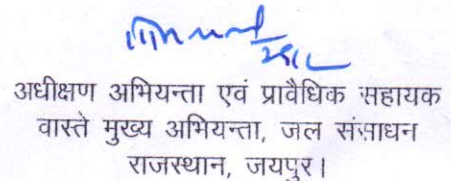 अधीक्षण अभियन्ता एवं प्रावैधिक सहायक
वास्ते मुख्य अभियन्ता, जल संसाधन
राजस्थान, जयपुर।